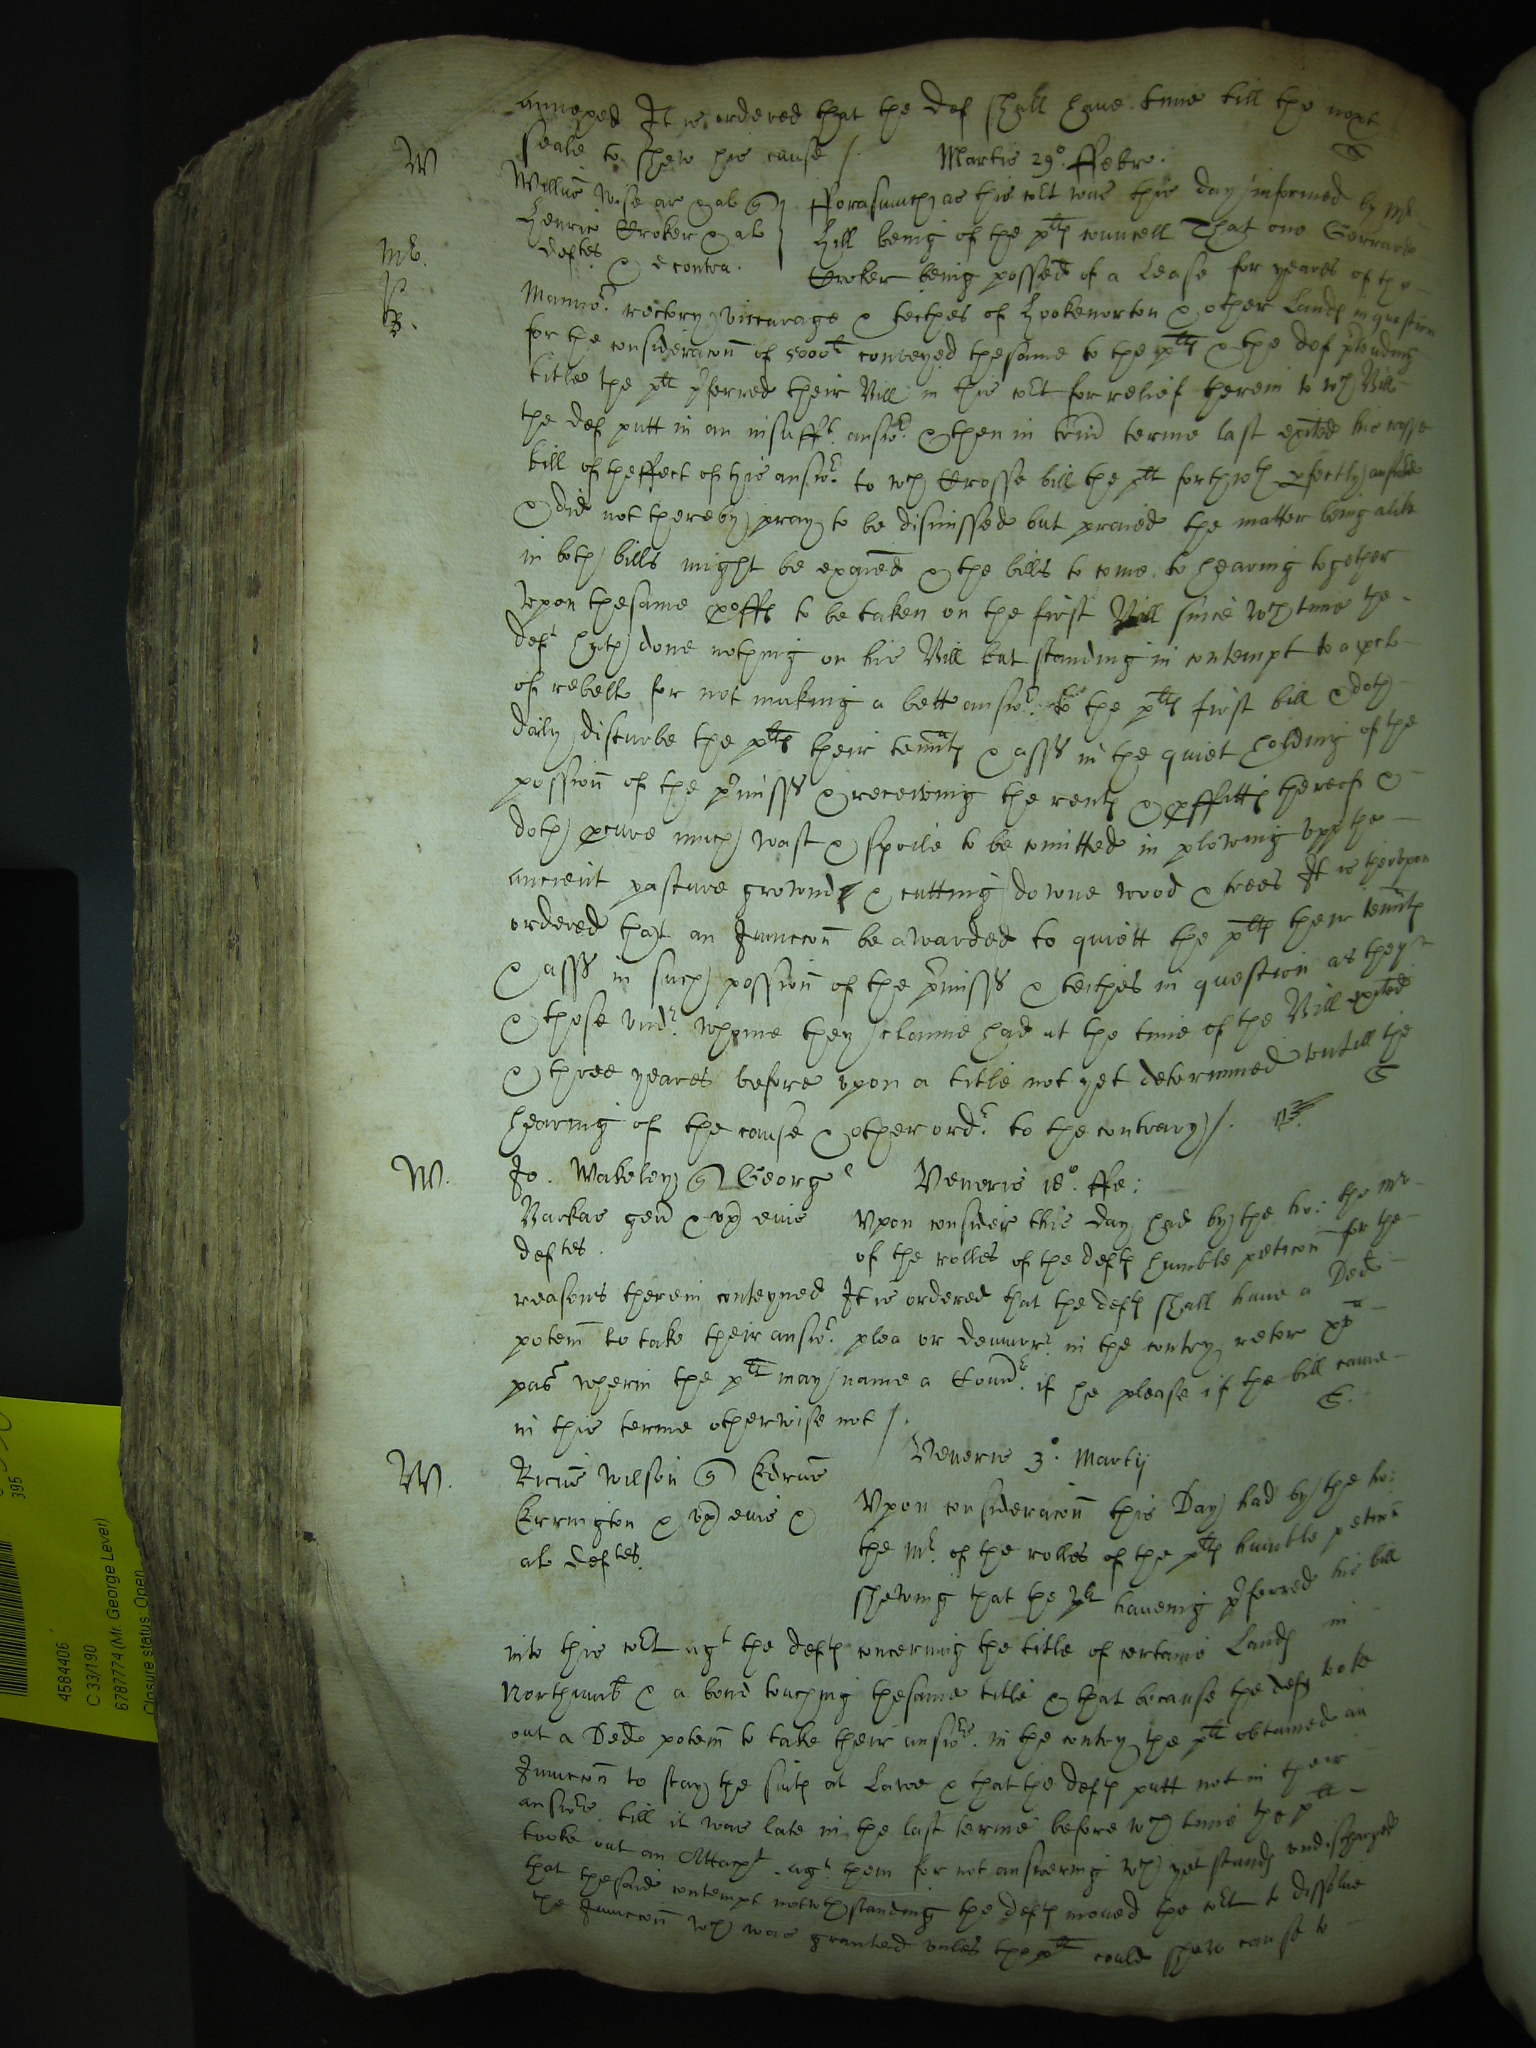 annexed It is ordered that the def shall haue time till the next
seale to shew his cause /. Martis 29o. ffebr.
W
Willus Wise ar & al qu fforasmuch as this cot was this day informed by Mr
Henric Croker & al Hill being of the pltes councell That one Gerrard
deftes & e contra. Croker being possed of a Lease for yeares of the
Mannor rectory viccarage & teithes of Hookenorton & other Landes in question
for the consideracon of 5000li conveyed thesame to the pltes & the def ptending
title the plt pferred their Bill in this cot for relief therein to wch Bill
the def putt in an insufft. answr. & then in trin terme last exited his crosse
bill of theffect of his answr. to wch Crosse bill the plt forthwth pfectly answered
& did not thereby pray to be dismissed but praied the matter being alike
in both bills might be exaied & the bills to come to hearing together
vpon thesame prooffes to be taken on the first Bill since wch time the
deft hath done nothing on his Bill but standing in contempt to a procl
of rebell for not making a bettr answr. to the pltes first bill & doth
daily disturbe the pltes their tennts & asss in the quiet holding of the
possion of the pmisss & receiuing the rentes & pffittes thereof &
doth pcure much wast & spoile to be comitted in plowing vpp the
ancient pasture growndes & cutting downe wood & trees It is thervpon
ordered that an Iniunccon be awarded to quiett the pltes their tennts
& asss in such possion of the pmisss & teithes in question as they
& those vndr. whome they clayme had at the time of the Bill exited
& three yeares before vpon a title not yet determined vntill the
hearing of the cause & other ordr. to the contrary /.
W. Jo. Wakeley qu George Veneris 18o. ffe:
Backas gen & vx eius Vpon consider this day had by the ho: the Mr
deftes. of the rolles of the deftes humble peticon for the
reasons therein conteyned It is ordered that the deftes shall haue a Ded
potem to take their answr. plea or demurr. in the contry retor xv
pas wherin the plt may name a Comr. if he please if the bill came
in this terme otherwise not /.
W. Veneris 3o. Martij
Ricus Wilson qu Edrus Vpon consideracon this Day had by the ho:
Errington & vx eius & the Mr. of the rolles of the pltes humble peticon
al deftes. shewing that he plt haueing pferred his bill
into this cot agt the deftes concerning the title of certaine Landes in
Northumb & a bond touching thesame title & that because the deftes tooke
out a Ded potem to take their answrs. in the contry the plt obtained an
Iniunccon to stay the suites at Lawe & that the deftes putt not in their
answrs. till it was late in the last terme before wch time the plt
tooke out an Attacht. agt. them for not answering wch yet standes vndischarged
that thesaid contempt notwthstanding the deftes moued the cot to dissolue
the Iniunccon wch was granted vnles the plt could shew cause to
4584406
C 33/190
6787774 (Mr. George Lever)
Closure status: Open
395